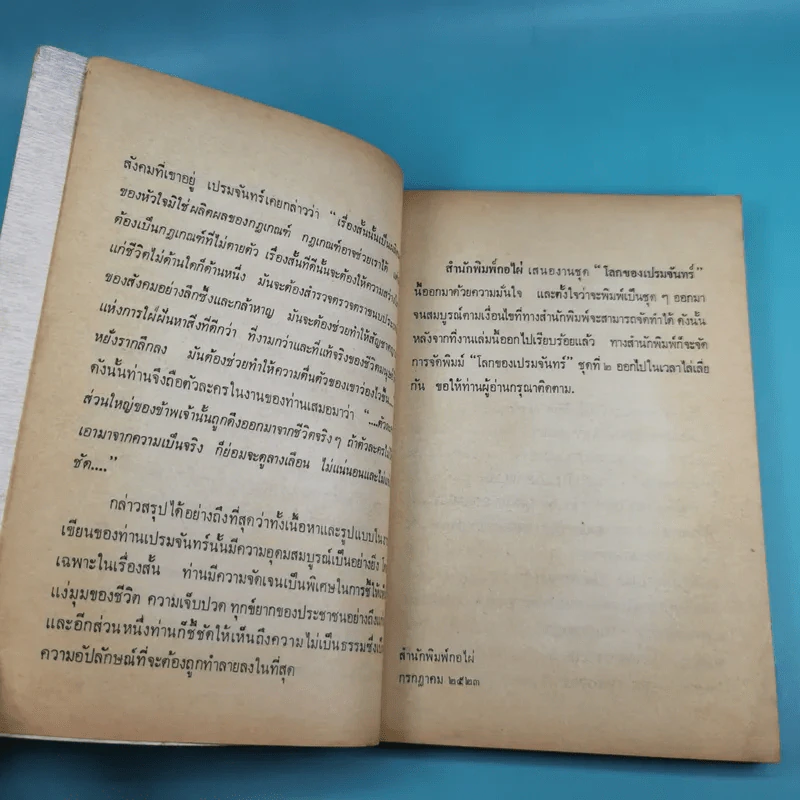 สังคมที่เขาอยู่ เปรมจันทร์เคยกล่าวว่า “ เรื่องสั้นนั้นเป็น
ของหัวใจมิใช่ผลิตผลของกฎเกณฑ์ กฎเกณฑ์อาจช่วยเราได้
ต้องเป็นกฎเกณฑ์ที่ไม่ตายตัว เรื่องสั้นที่ดีนั้นจะต้องให้ความสว่าง
แก่ชีวิตไม่ด้านใดก็ด้านหนึ่ง มันจะต้องสำรวจตรวจตราขนบประเพณี
ของสังคมอย่างลึกซึ้งและกล้าหาญ มันจะต้องช่วยทำให้สัญชาตญาณ
แห่งการใฝ่ฝันหาสิ่งที่ดีกว่า ที่งามกว่าและที่แท้จริงของชีวิตมนุษย์
หยั่งรากลึกลง มันต้องช่วยทำให้ความตื่นตัวของเขาว่องไวขึ้น
ดังนั้นท่านจึงถือตัวละครในงานของท่านเสมอมาว่า “....ตัวละคร
ส่วนใหญ่ของข้าพเจ้านั้นถูกดึงออกมาจากชีวิตจริงๆ ถ้าตัวละครไม่
เอามาจากความเป็นจริง ก็ย่อมจะดูลางเลือน ไม่แน่นอนและไม่
ชัด....”
กล่าวสรุปได้อย่างถึงที่สุดว่าทั้งเนื้อหาและรูปแบบใน
เขียนของท่านเปรมจันทร์นั้นมีความอุดมสมบูรณ์เป็นอย่างยิ่ง โดย
เฉพาะในเรื่องสั้น ท่านมีความจัดเจนเป็นพิเศษในการชี้ให้เห็น
แง่มุมของชีวิต ความเจ็บปวด ทุกข์ยากของประชาชนอย่างถึง
และอีกส่วนหนึ่งท่านก็ชี้ชัดให้เห็นถึงความไม่เป็นธรรมซึ่งเป็น
ความอัปลักษณ์ที่จะต้องถูกทำลายลงในที่สุด
สำนักพิมพ์กอไผ่ เสนองานชุด “โลกของเปรมจันทร์”
นี้ออกมาด้วยความมั่นใจ และตั้งใจว่าจะพิมพ์เป็นชุด ๆ ออกมา
จนสมบูรณ์ตามเงื่อนไขที่ทางสำนักพิมพ์จะสามารถจัดทำได้ ดังนั้น
หลังจากที่งานเล่มนี้ออกไปเรียบร้อยแล้ว ทางสำนักพิมพ์ก็จะจัด
การจัดพิมม์ “โลกของเปรมจันทร์” ชุดที่ ๒ ออกไปในเวลาไล่เลี่ย
กัน ขอให้ท่านผู้อ่านกรุณาติดตาม.
สำนักพิมพ์กอไผ่
กรกฎาคม ๒๕๒๓